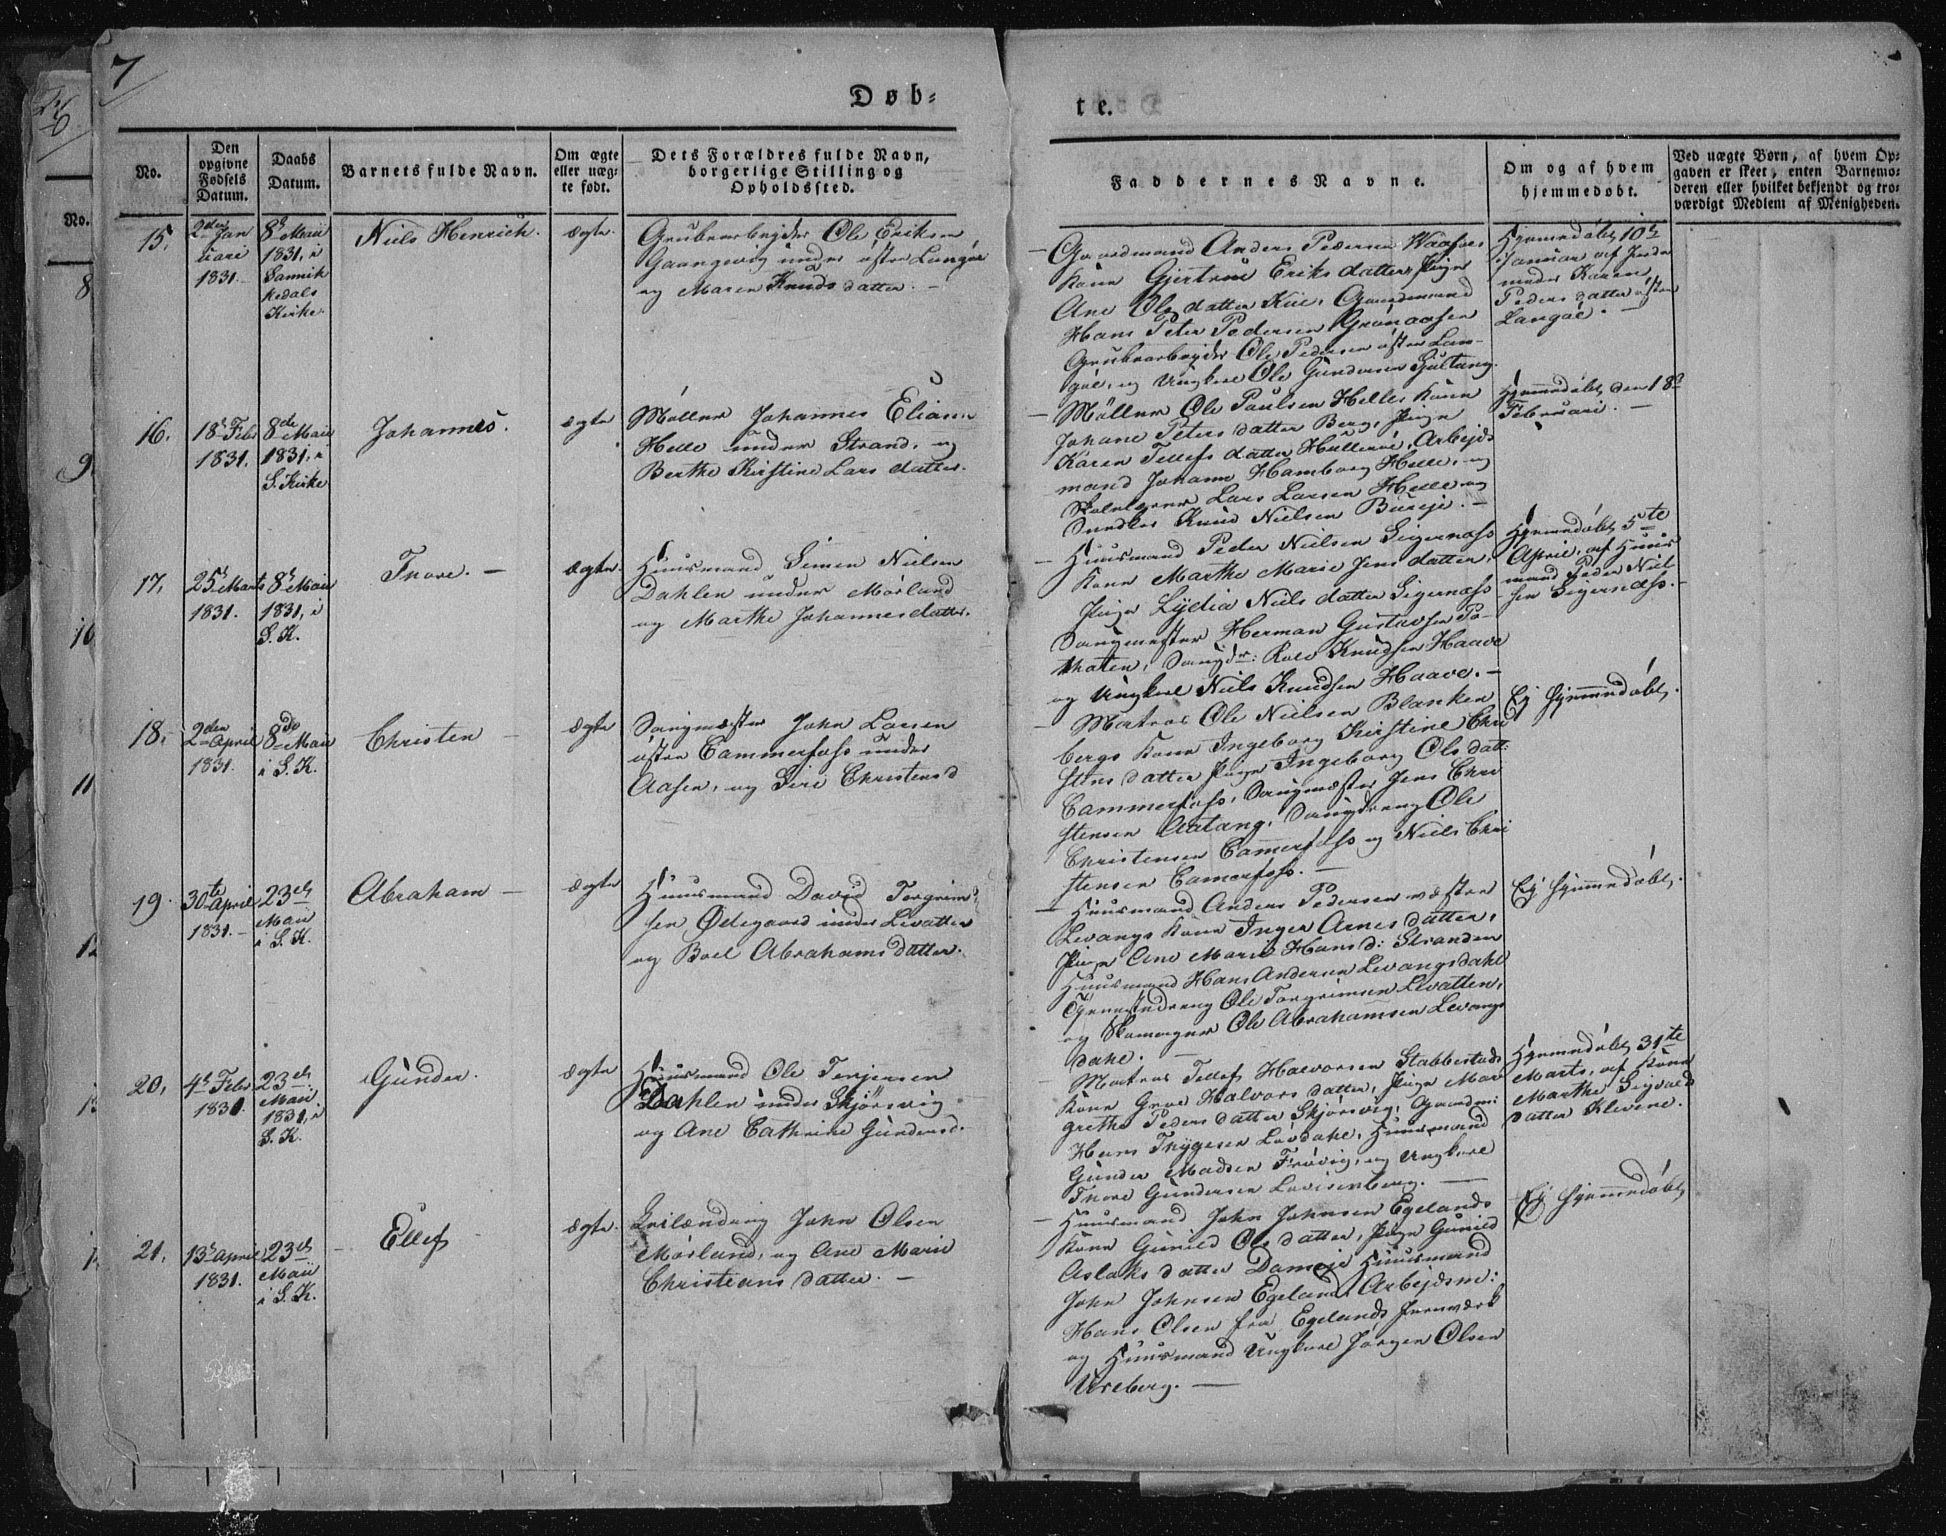 7
Døb-
te.
No.
Den opgivne Fødsels Datum.
Daabs Datum.
Barnets fulde Navn.
Om ægte eller uægte født.
Dets Forældres fulde Navn, borgerlige Stilling og Opholdssted.
Faddernes Navne.
Om og af hvem hjemmedøbt.
Ved uægte Børn, af hvem Opgaven er skeet, enten Barnemoderen eller hvilket bekjendt og troværdigt Medlem af Menigheden.
15.
2den Januari
1831.
8de Maii
1831, i
Sannikedals
Kirke.
Niels Henrich.
ægte
Grubearbejder Ole Eriksen
under østre Langøe
og Maren Knudsdatter. —
— Gaardmand Anders Pedersen
Kone Gjertrue Eriksdatter, Pige
Ane Olsdatter Kiil, Gaardmand
Hans Peter Pedersen Grønaasen
Grubearbejder Ole Pedersen østre Lan-
gøe, og Ungkarl Ole Gundersen
Hjemmedøbt 10de
Januar af Jorde
moder Karen
Pedersdatter østre
Langøe. —
16.
18de Febr
1831.
8de Maii
1831, i
S. Kirke
Johannes.
ægte
Møller Johannes Elias.
Helle under Strand, og
Berthe Kirstine Larsdatter.
— Møller Ole Paulsen Helles Kone
Johane Petersdatter Berg, Pige
Karen Tellefsdatter Halleröe, Arbejds
mand Johannes Hamborg Helle, og
Skolelærer Lars Larsen Helle og
Knud Nielsen —
Hjemmedøbt, den 18de
Februari. —
17.
25de Marts
1831.
8de Maii
1831, i
S. K.
Thore. —
ægte.
Huusmand Simen Nielsen
Dahlen under Mørland
og Marthe Johannesdatter.
— Huusmand Peder Nielsen Sigernæss
Kone Marthe Marie Jensdatter,
Pige Lydia Nielsdatter Sigernæss
Saugmester Herman Gustavsen Po-
thaten, Saugdr: Roer Knudsen Haave
og Ungkarl Niels Knudsen Haave. —
Hjemmedøbt 5te
April, af Huus
mand Peder Niel-
sen Sigernæss. —
18.
2den April
1831.
8de Maii
i S. K.
Christen —
ægte
Saugmester John Larsen
østre Cammerfoss under
Aasen, og Siri Christensd
— Matros Ole Nielsen Blanken
bergs Kone Ingeborg Kirstine Chri
stensdatter Pige Ingeborg Olsdatt:
Cammerfoss, Saugmæster Jens Chri
stensen Aatang, Saugdreng Ole
Christensen Camerfoss og Niels Chri
stensen Camerfoss. —
Ej hjemmedøbt.
19.
30te April
1831. —
23de
Maii
i S. K.
Abraham —
ægte
Huusmand David Torgrim-
sen Ødegaard under Levatten
og Boel Abrahamsdatter.
— Huusmand Anders Pedersen væstre
Levangs Kone Inger Arnesdatter,
Pige Ane Marie Hansd: Stranden
Huusmand Hans Andersen Levangsdahl
Tjenestedreng Ole Torgrimsen Levatten,
og Skomager Ole Abrahamsen Levangs
dahl. —
Ej hjemmedøbt.
20.
4de Febr
1831.
23de
Maii
1831, i
S. K.
Gunder.
ægte
Huusmand Ole Terjesen
Dahlen under Skjørsvig
og Ane Cathrine Gundersd.
— Matros Tellef Halvorsen Stabbestads
Kone Groe Halvorsdatter, Pige Mar
grethe Pedersdatter Skjørsvig, Gaardm:
Hans Thygesen Løvdahl, Huusmand
Gunder Madsen Frøvig, og Ungkarl
Thore Gundersen Lovisenberg. —
Hjemmedøbt 31te
Marts, af Kone
Marthe Sigvalds
datter Klevene.
21.
13de April
1831.
23de
Maii
i S. K.
— Ellef
ægte.
Leilænding John Olsen
Mørland, og Ane Marie
Christiansdatter. —
— Huusmand John Johnsen Egelands
Kone Gunild Olsdatter, Pige Gunild
Aslaksdatter Damsie Huusmand
John Johnsen Egeland Arbejdsm:
Hans Olsen fra Egelands Jernværk
og Huusmand Ungkarl Jørgen Olsen
Ureberg. —
Ej hjemmedøbt